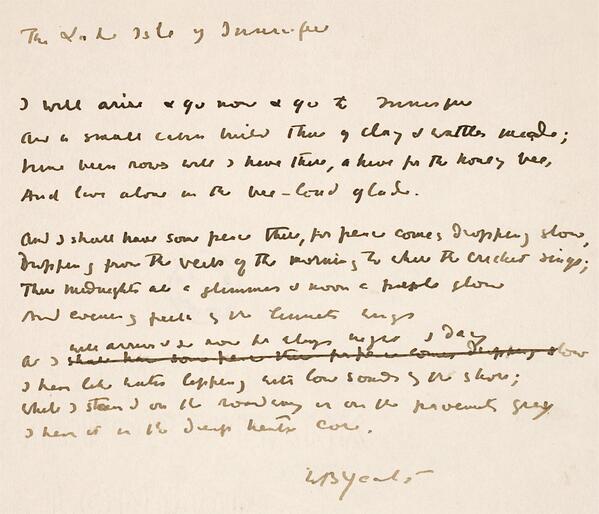 The Lake Isle of Innisfree
I will arise & go now & go to Innisfree
And a small cabin build there of clay & wattles made;
Nine bean rows will I have there, a hive for the honey bee,
And live alone in the bee-loud glade.
And I shall have some peace there, for peace comes dropping slow,
Dropping from the veils of the morning to where the cricket sings;
There midnights all a glimmer & noon a purple glow
And evening full of the linnets wings
will arise & go now for always night & day
And I shall have some peace there for peace comes dropping slow
I hear lake water lapping with low sounds by the shore;
While I stand on the roadway or on the pavements grey
I hear it in the deep hearts core.
WBYeats